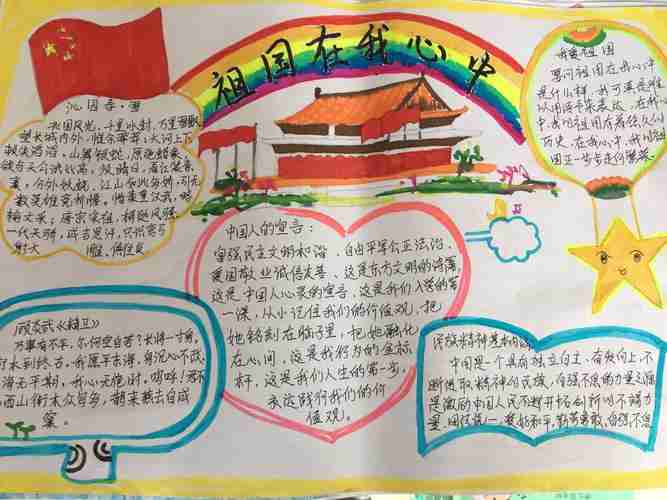 祖国在我心中
沁园春·雪
北国风光,千里冰封,万里雪飘
望长城内外,惟余莽莽,大河上下
顿失滔滔,山舞银蛇,原驰蜡象
欲与天公试比高,须晴日,看红装素
裹,分外妖娆,江山如此多娇,引无
数英雄竞折腰,惜秦皇汉武,略
输文采;唐宗宋祖,稍逊风骚
一代天骄,成吉思汗,只识弯弓
射大
我爱祖国
要问祖国在我心中
是什么样,我可真是难
以用语言来表达,在我心
中,我的祖国有着
历史,在我心中,我的祖
国正一步步走向繁荣
中国人的宣言:
富强民主文明和谐、自由平等公正法治、
爱国敬业诚信友善、这是东方文明的
这是中国人心灵的宣言、这是我们入学的第
一课,从小记住我们的价值观、把
她铭刻在脑子里,把她融化
在心间,这是我行为的坐标
杆,这是我们人生的第一步,
永远践行我们的价
值观。
顾炎武《精卫》
万事有不平,尔何空自苦?长将一寸身,
木到终古,我愿平东海,身沉心不改,
海无平期,我心无绝时,呜呼!君不
西山衔木众鸟多,鹊来燕去自成
窠
民族精神
中国是一个具有独立自主,奋发向上,不
断进取精神的民族,自强不息的力量
是激励中国人民不断开拓创新的不竭力
量,团结统一,爱好和平,勤劳勇敢,自强不息